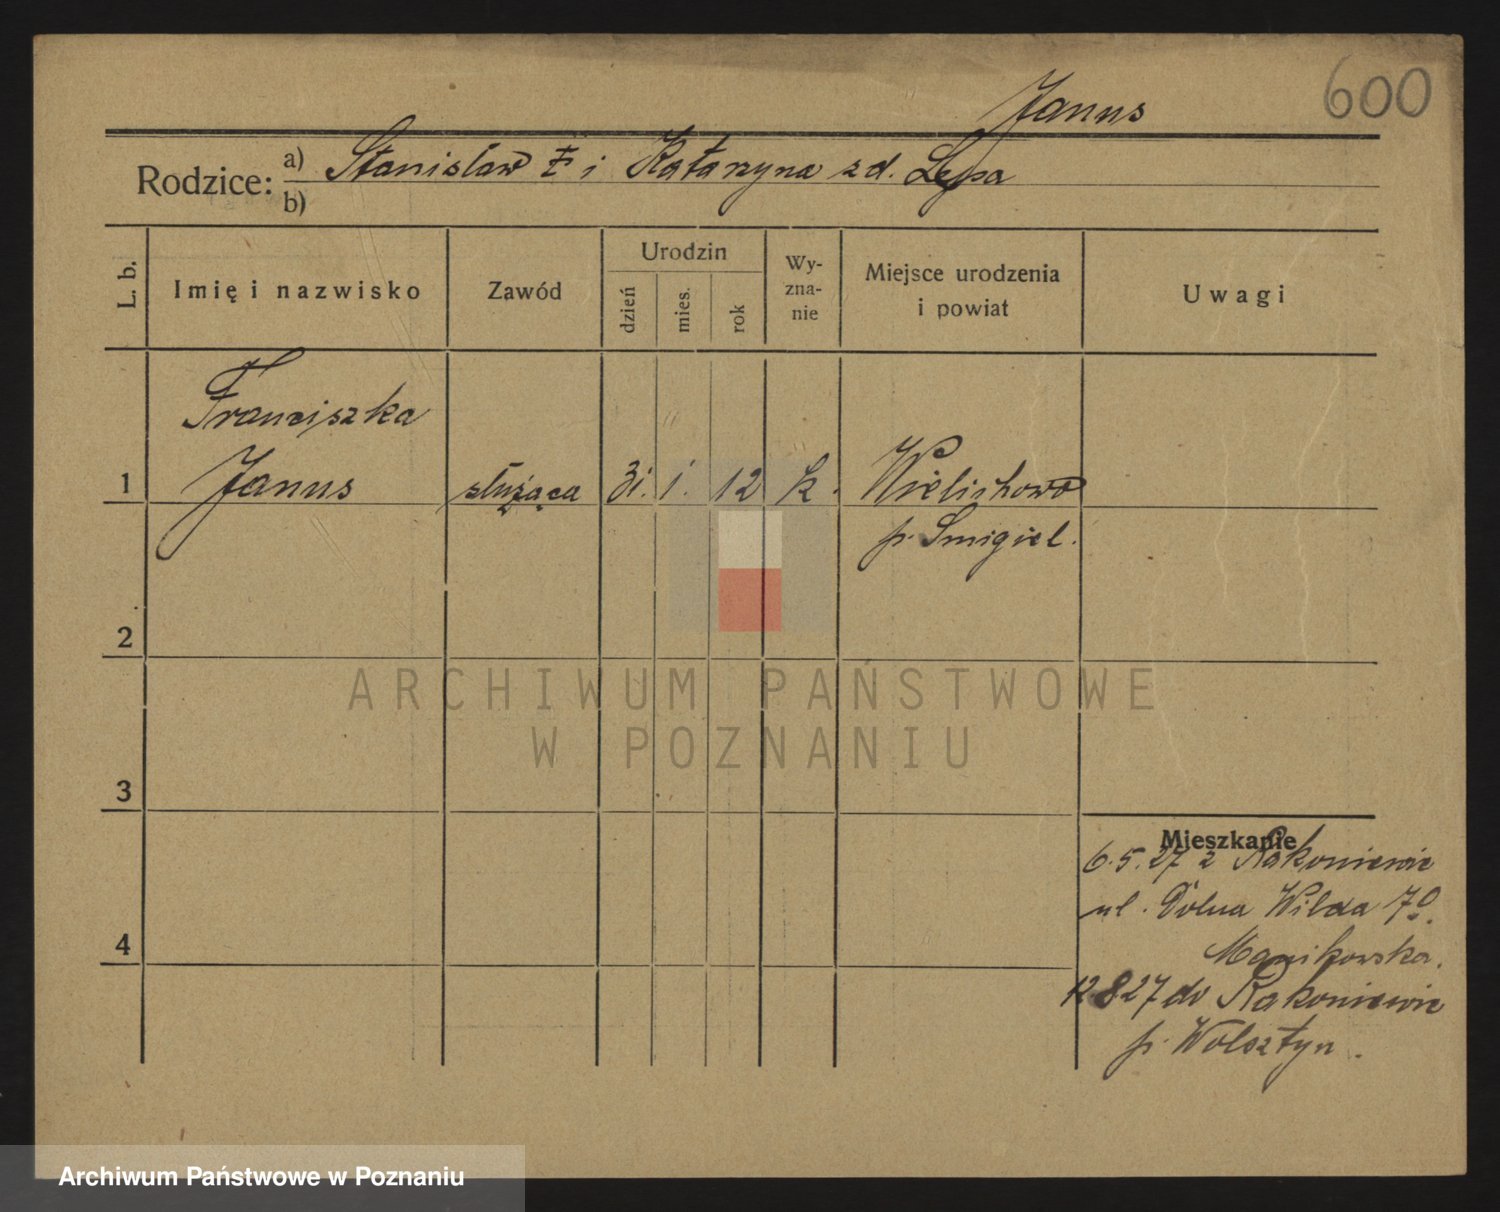 600
Janus
Rodzice: a) Stanisław ✝ i Katarzyna zd. Lepa
b)
L. b.
Imię i nazwisko
Zawód
Urodzin
dzień
mies.
rok
Wy-
zna-
nie
Miejsce urodzenia
i powiat
Uwagi
Franciszka
1 Janus służąca 31. 1. 12 k. Wielichowo
p. Smigiel.
2
3
4
Mieszkanie
6.5.27 z Rakoniewic
ul. Dolna Wilda 70.
Manikowska.
12 8 27 do Rakoniewic
p. Wolsztyn.
ARCHIWUM PAŃSTWOWE
W POZNANIU
Archiwum Państwowe w Poznaniu